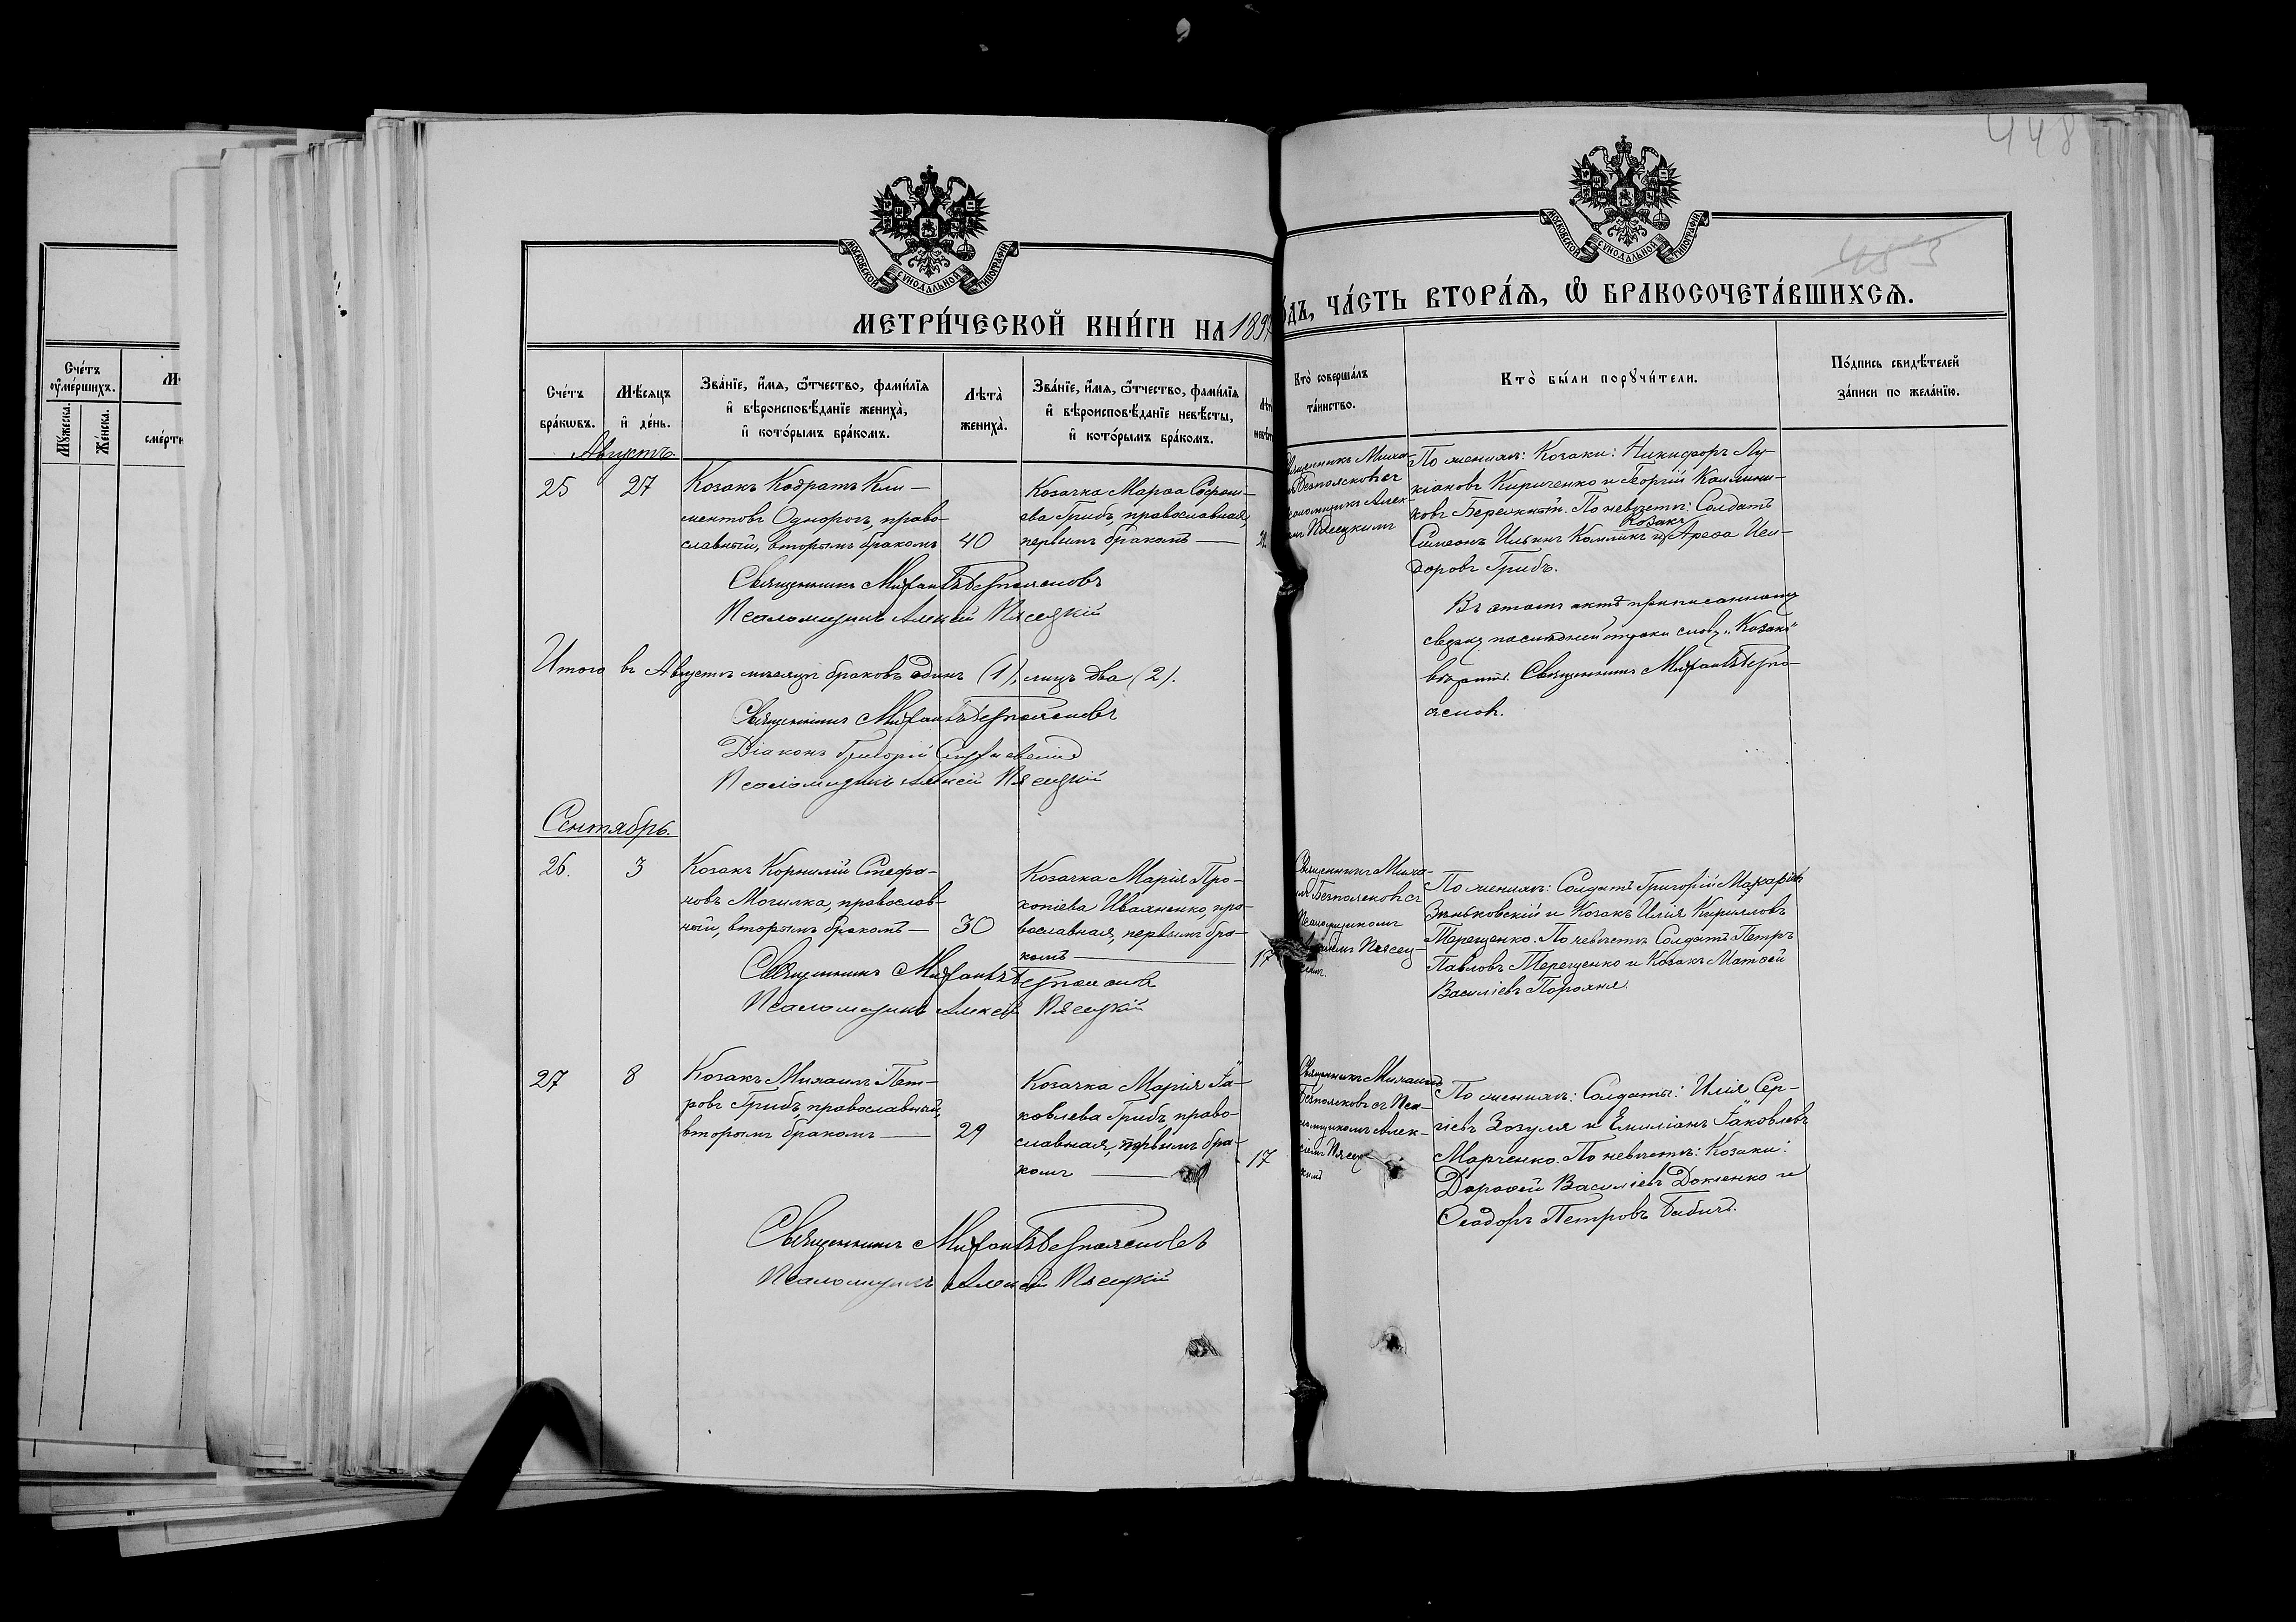 448
453
МОСКОВСКОЙ СѴНОДАЛЬНОЙ ТИПОГРАФІИ
МОСКОВСКОЙ СѴНОДАЛЬНОЙ ТИПОГРАФІИ
МЕТРИ́ЧЕСКОЙ КНИ́ГИ НА 189
ДЪ, ЧА́СТЬ ВТОРА́Я, Ѡ БРАКОСОЧЕТА́ВШИХСЯ.
Сче́тъ
оумершихъ.
Мужеска.
Же́нска.
сме́рти
Сче́тъ
бра́ковъ.
Мѣ́сяцъ
и де́нь.
Зва́нїе, и́мя, ѻтчество, фами́лїя
и вѣроисповѣ́данїе жениха̀,
и кото́рымъ бра́комъ.
Лѣта̀
жениха̀.
Зва́нїе, и́мя, ѻтчество, фами́лїя
и вѣроисповѣ́данїе невѣ́сты,
и кото́рымъ бра́комъ.
Кто̀ соверша́лъ
та́инство.
Кто̀ бы́ли поручи́тели.
По́дпись свидѣ́телей
за́писи по жела́нїю.
Августъ.
25
27
Козакъ Кодратъ Кли-
ментовъ Однорогъ, право-
славный, вторымъ бракомъ
40
Козачка Марѳа Софрони-
ева Грибъ, православная,
первымъ бракомъ
Священникъ Миха-
Безпоясковъ съ
псаломщикомъ Алек-
Пясецкимъ
По женихѣ: Козаки: Никифоръ Лу-
кіановъ Кириченко и Георгій Каллини-
ковъ Бережный. По невѣстѣ: Солдатъ
Козакъ
Симеонъ Ильинъ Комликъ и Ареѳа Иси-
доровъ Грибъ.
Священникъ Михаилъ Безпоясковъ
Псаломщикъ Алексій Пясецкій
Въ этомъ актѣ приписанному
сверху послѣдней строки слову „Козакъ"
вѣрить. Священникъ Михаилъ Безпо-
ясковъ.
Итого въ Августѣ мѣсяцѣ браковъ одинъ (1), лицъ два (2).
Священникъ Михаилъ Безпоясковъ
Діаконъ Григорій
Псаломщикъ Алексій Пясецкій
Сентябрь.
26.
3
Козакъ Корнилій Стефа-
новъ Могилка, православ-
ный, вторымъ бракомъ
30
Козачка Марія Про-
копіева Иваненко, пра-
вославная, первымъ бра-
комъ
17
Священникъ Миха-
илъ Безпоясковъ съ
Псаломщикомъ
Алексіемъ Пясец-
кимъ.
По женихѣ: Солдатъ Григорій Макаріевъ
Зѣньковскій и Козакъ Илія Кирилловъ
Терещенко. По невѣстѣ Солдатъ Петръ
Павловъ Терещенко и Козакъ Матѳей
Василіевъ Порохня.
Священникъ Михаилъ Безпоясковъ
Псаломщикъ Алексій Пясецкій
27
8
Козакъ Михаилъ Пет-
ровъ Грибъ, православный,
вторымъ бракомъ
29
Козачка Марія Іа-
ковлева Грибъ, право-
славная, первымъ бра-
комъ
17
Священникъ Михаилъ
Безпоясковъ съ Пса-
ломщикомъ Алек-
сіемъ Пясец-
кимъ
По женихѣ: Солдаты: Илія Сер-
гіевъ Зозуля и Емиліанъ Іаковлевъ
Марченко. По невѣстѣ: Козаки:
Дороѳей Василіевъ Доженко и
Ѳеодоръ Петровъ Бабичъ.
Священникъ Михаилъ Безпоясковъ
Псаломщикъ Алексій Пясецкій